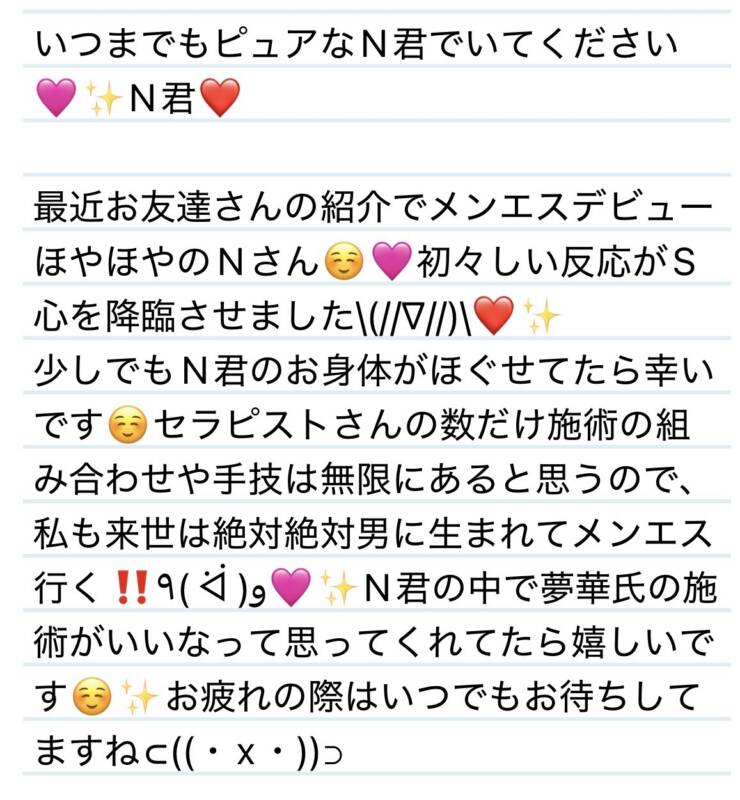 いつまでもピュアなN君でいてください
🩷✨N君❤️
最近お友達さんの紹介でメンエスデビュー
ほやほやのNさん☺️🩷初々しい反応がS
心を降臨させました\(//∇//)\❤️✨
少しでもN君のお身体がほぐせてたら幸い
です☺️セラピストさんの数だけ施術の組
み合わせや手技は無限にあると思うので、
私も来世は絶対絶対男に生まれてメンエス
行く‼️٩(ᐛ)و🩷✨N君の中で夢華氏の施
術がいいなって思ってくれてたら嬉しいで
す☺️✨お疲れの際はいつでもお待ちして
ますね⊂((・x・))⊃